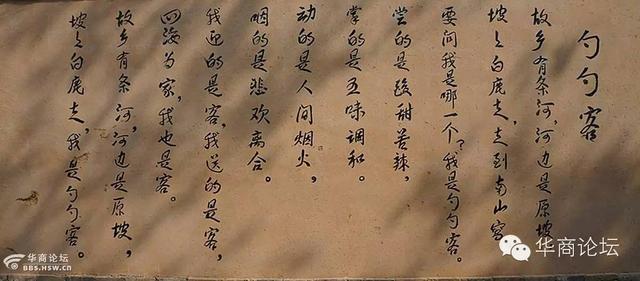 勺勺客
故乡有条河,河边是原坡
坡上白鹿走,走到南山
要问我是哪一个?我是勺勺客。
尝的是酸甜苦辣,
掌的是五味调和。
动的是人间烟火,
咽的是悲欢离合。
我迎的是客,我送的是客,
四海为家,我也是客。
故乡有条河,河边是原坡,
坡上白鹿走,我是勺勺客。
华商论坛
BBS.HSW.CN
华商论坛